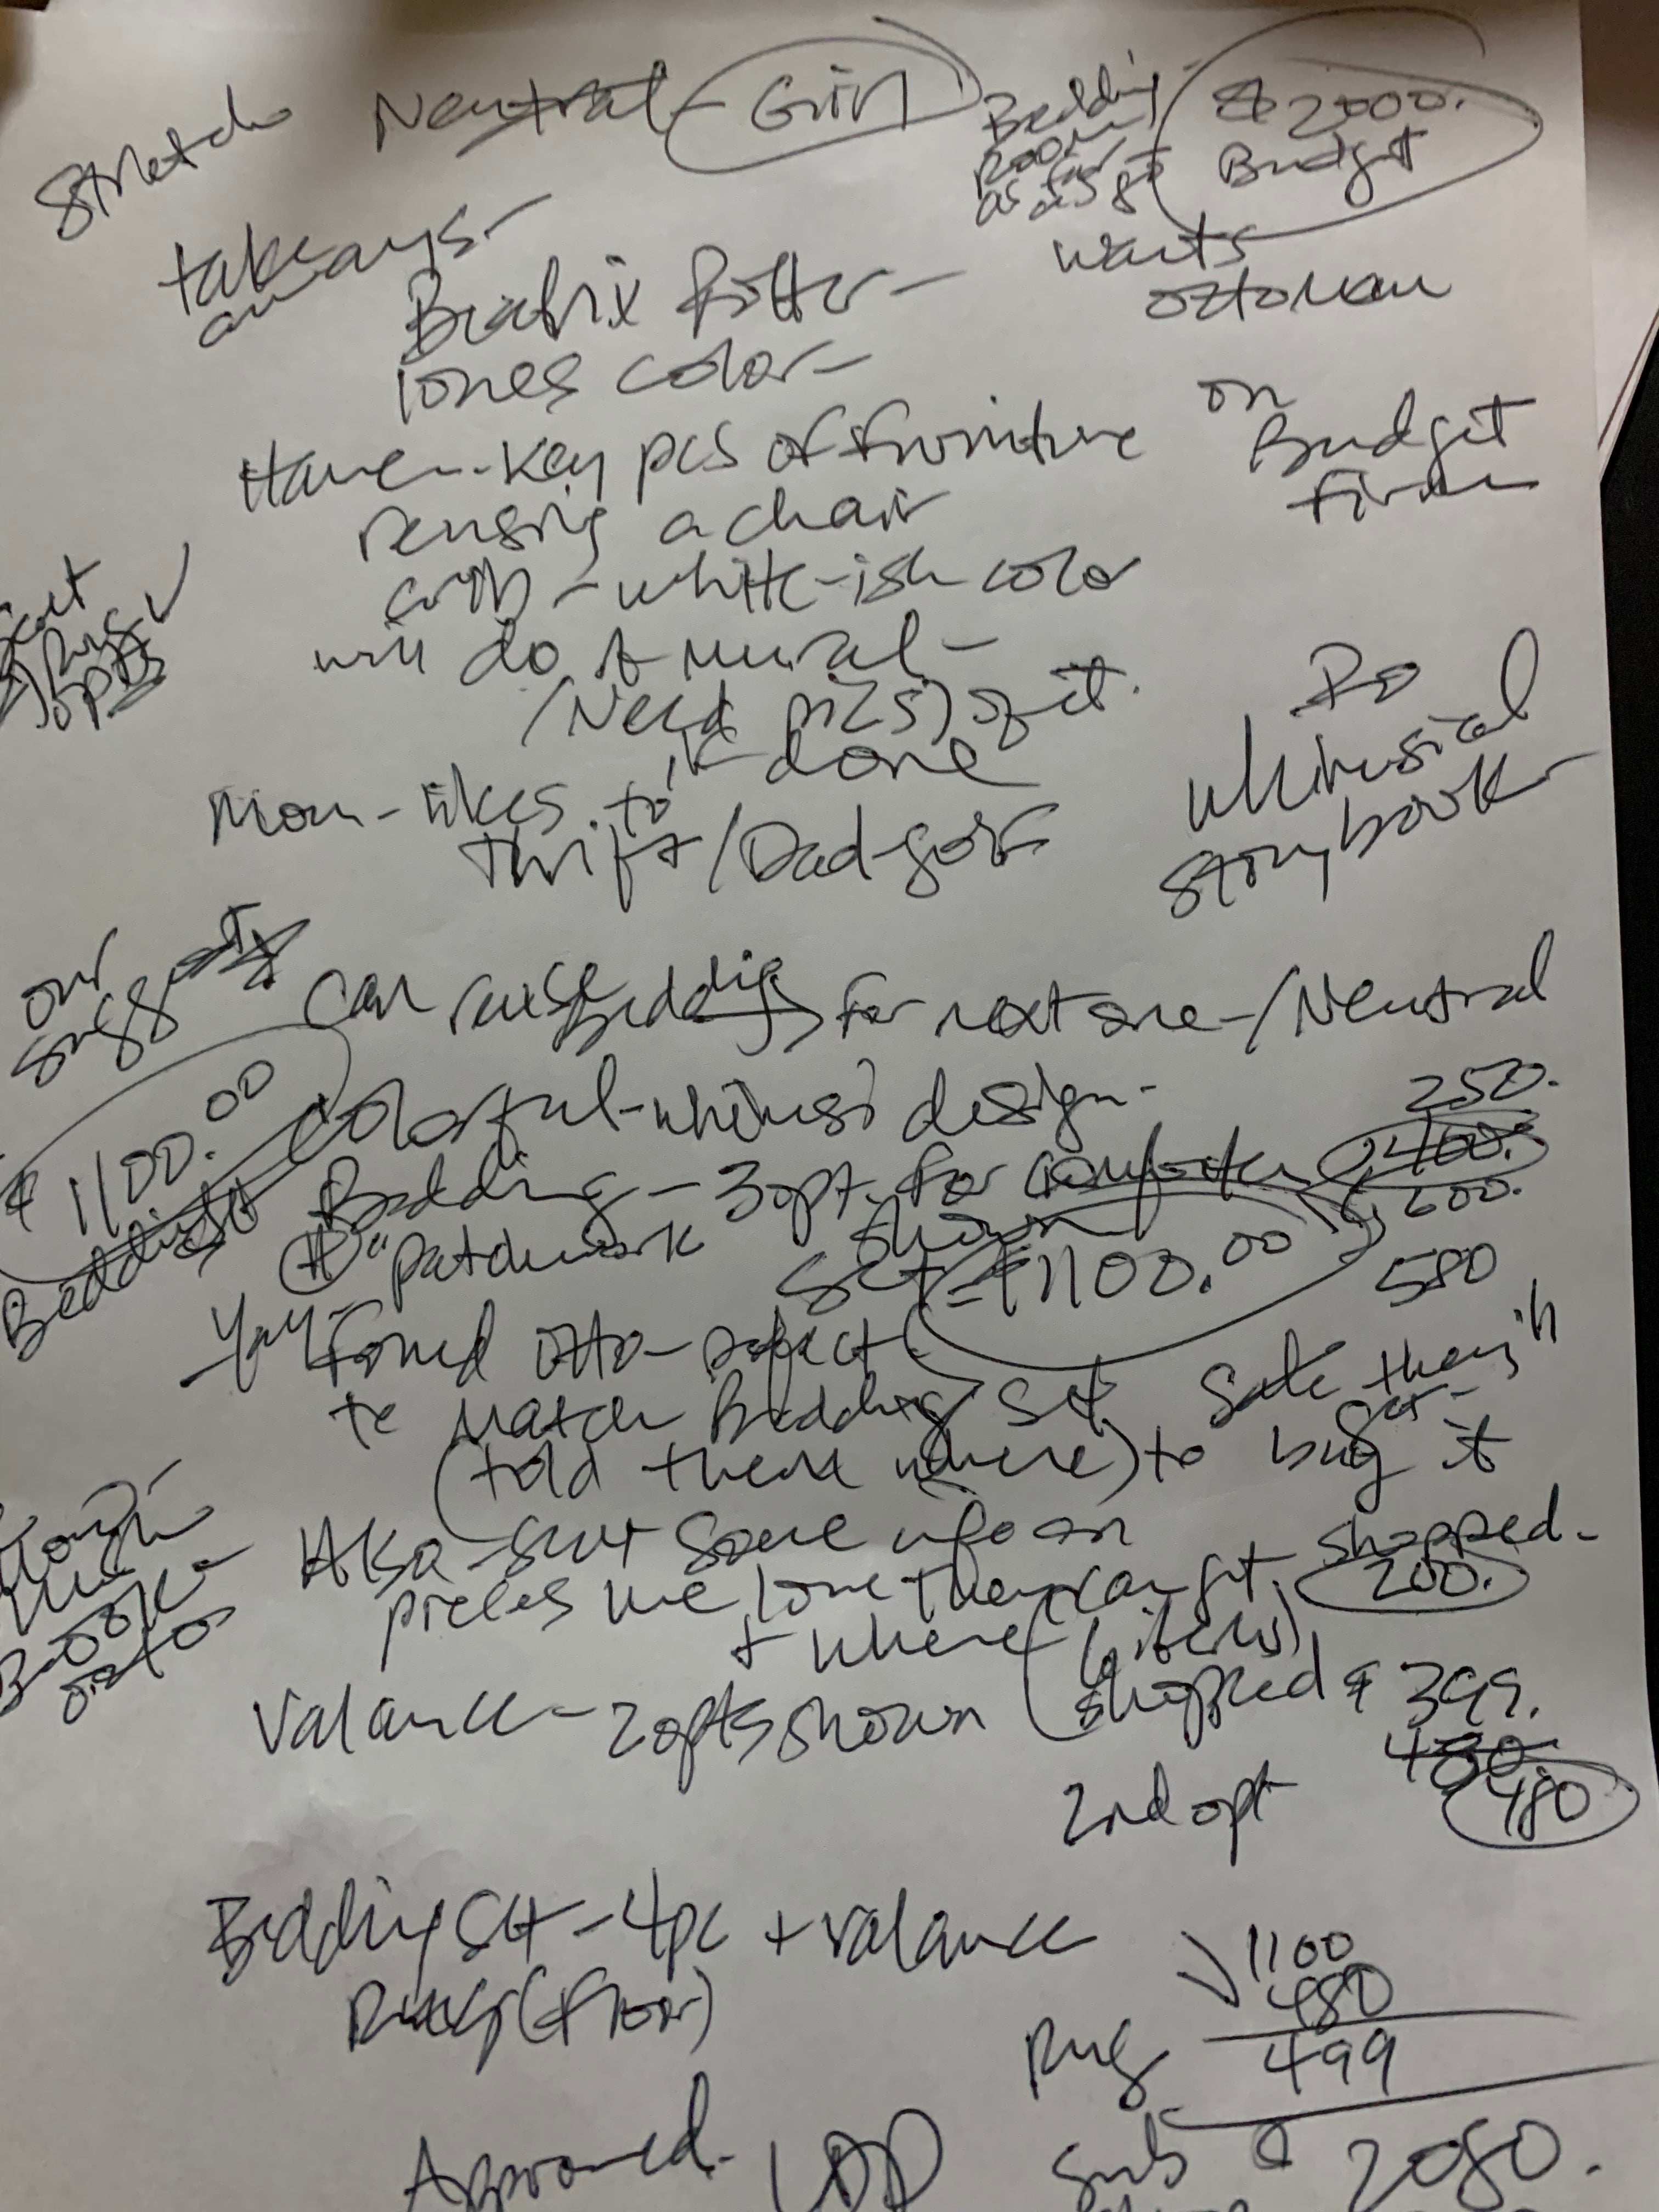 Stretch Neutral - Girl
Bedding
Room
as far
as go
$2000.
Budget
takeaways -
wants
ottoman
Beatrix Potter -
Tones color -
on
Budget
Firm
Have - key pcs of furniture
reusing a chair
crib - white-ish color
opts
will do a mural -
(Need pics) of it.
if done
Do
whimsical
storybook
Mom - likes to
thrift / Dad - golf
our
suggest
Can reuse Bedding for next one - / Neutral
$1100.00
Colorful - whimsi design -
250.
400.
600.
580
Bedding - 3 opt. for comforter
shown
#1 "patchwork
set = $1100.00
Bedding
Yay - Found otto - perfect
to match Bedding set
(told them where) to buy it
Also - sent some info on
pieces we love they can get
+ where (items)
shopped -
200.
Valance - 2 opts shown (shopped $399.
480
2nd opt 480
Bedding set - 4pc + valance
Rug (floor)
1100
480
Rug 499
Approved - Sub $2080.